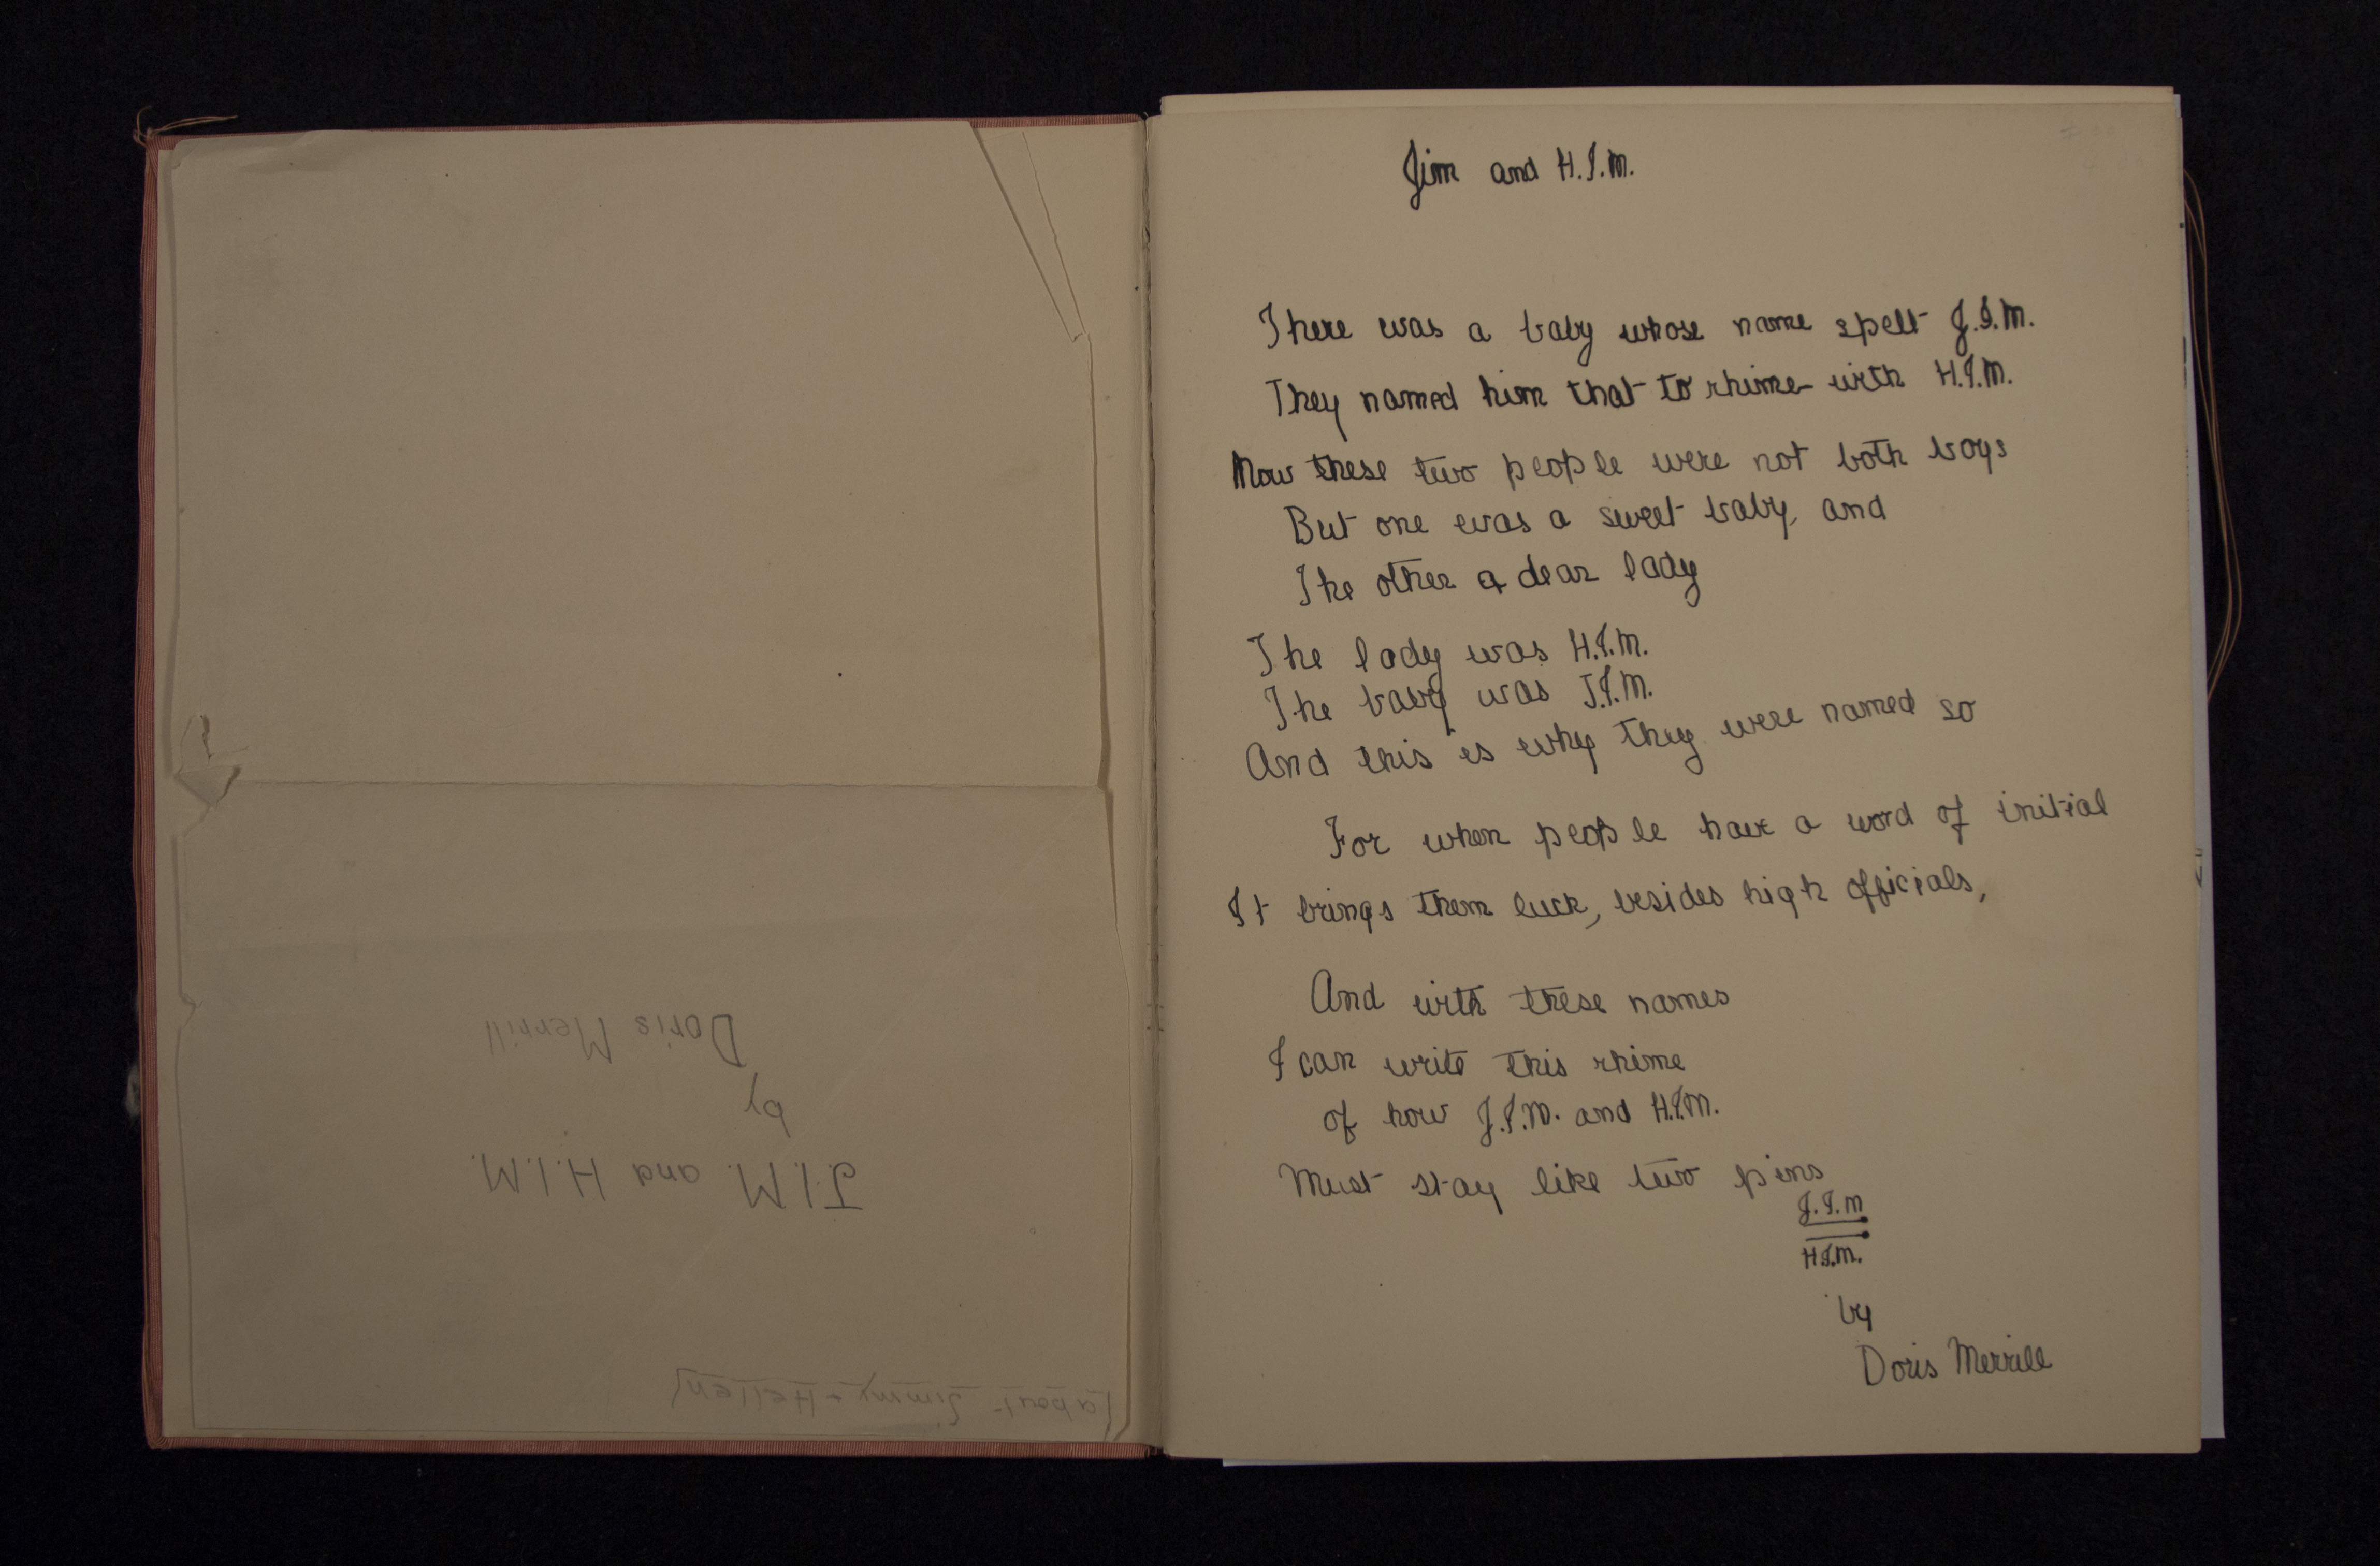 J.I.M. and H.I.M.
by
Doris Merrill
[about Jimmy + Hellen]
Jim and H.I.M.
There was a baby whose name spelt J.I.M.
They named him that to rhime with H.I.M.
Now these two people were not both boys
But one was a sweet baby, and
The other a dear lady
The lady was H.I.M.
The baby was J.I.M.
And this is why they were named so
For when people have a word of initial
It brings them luck, besides high officials,
And with these names
I can write this rhime
of how J.I.M. and H.I.M.
Must stay like two pins
J.I.M
H.I.M.
by
Doris Merrill